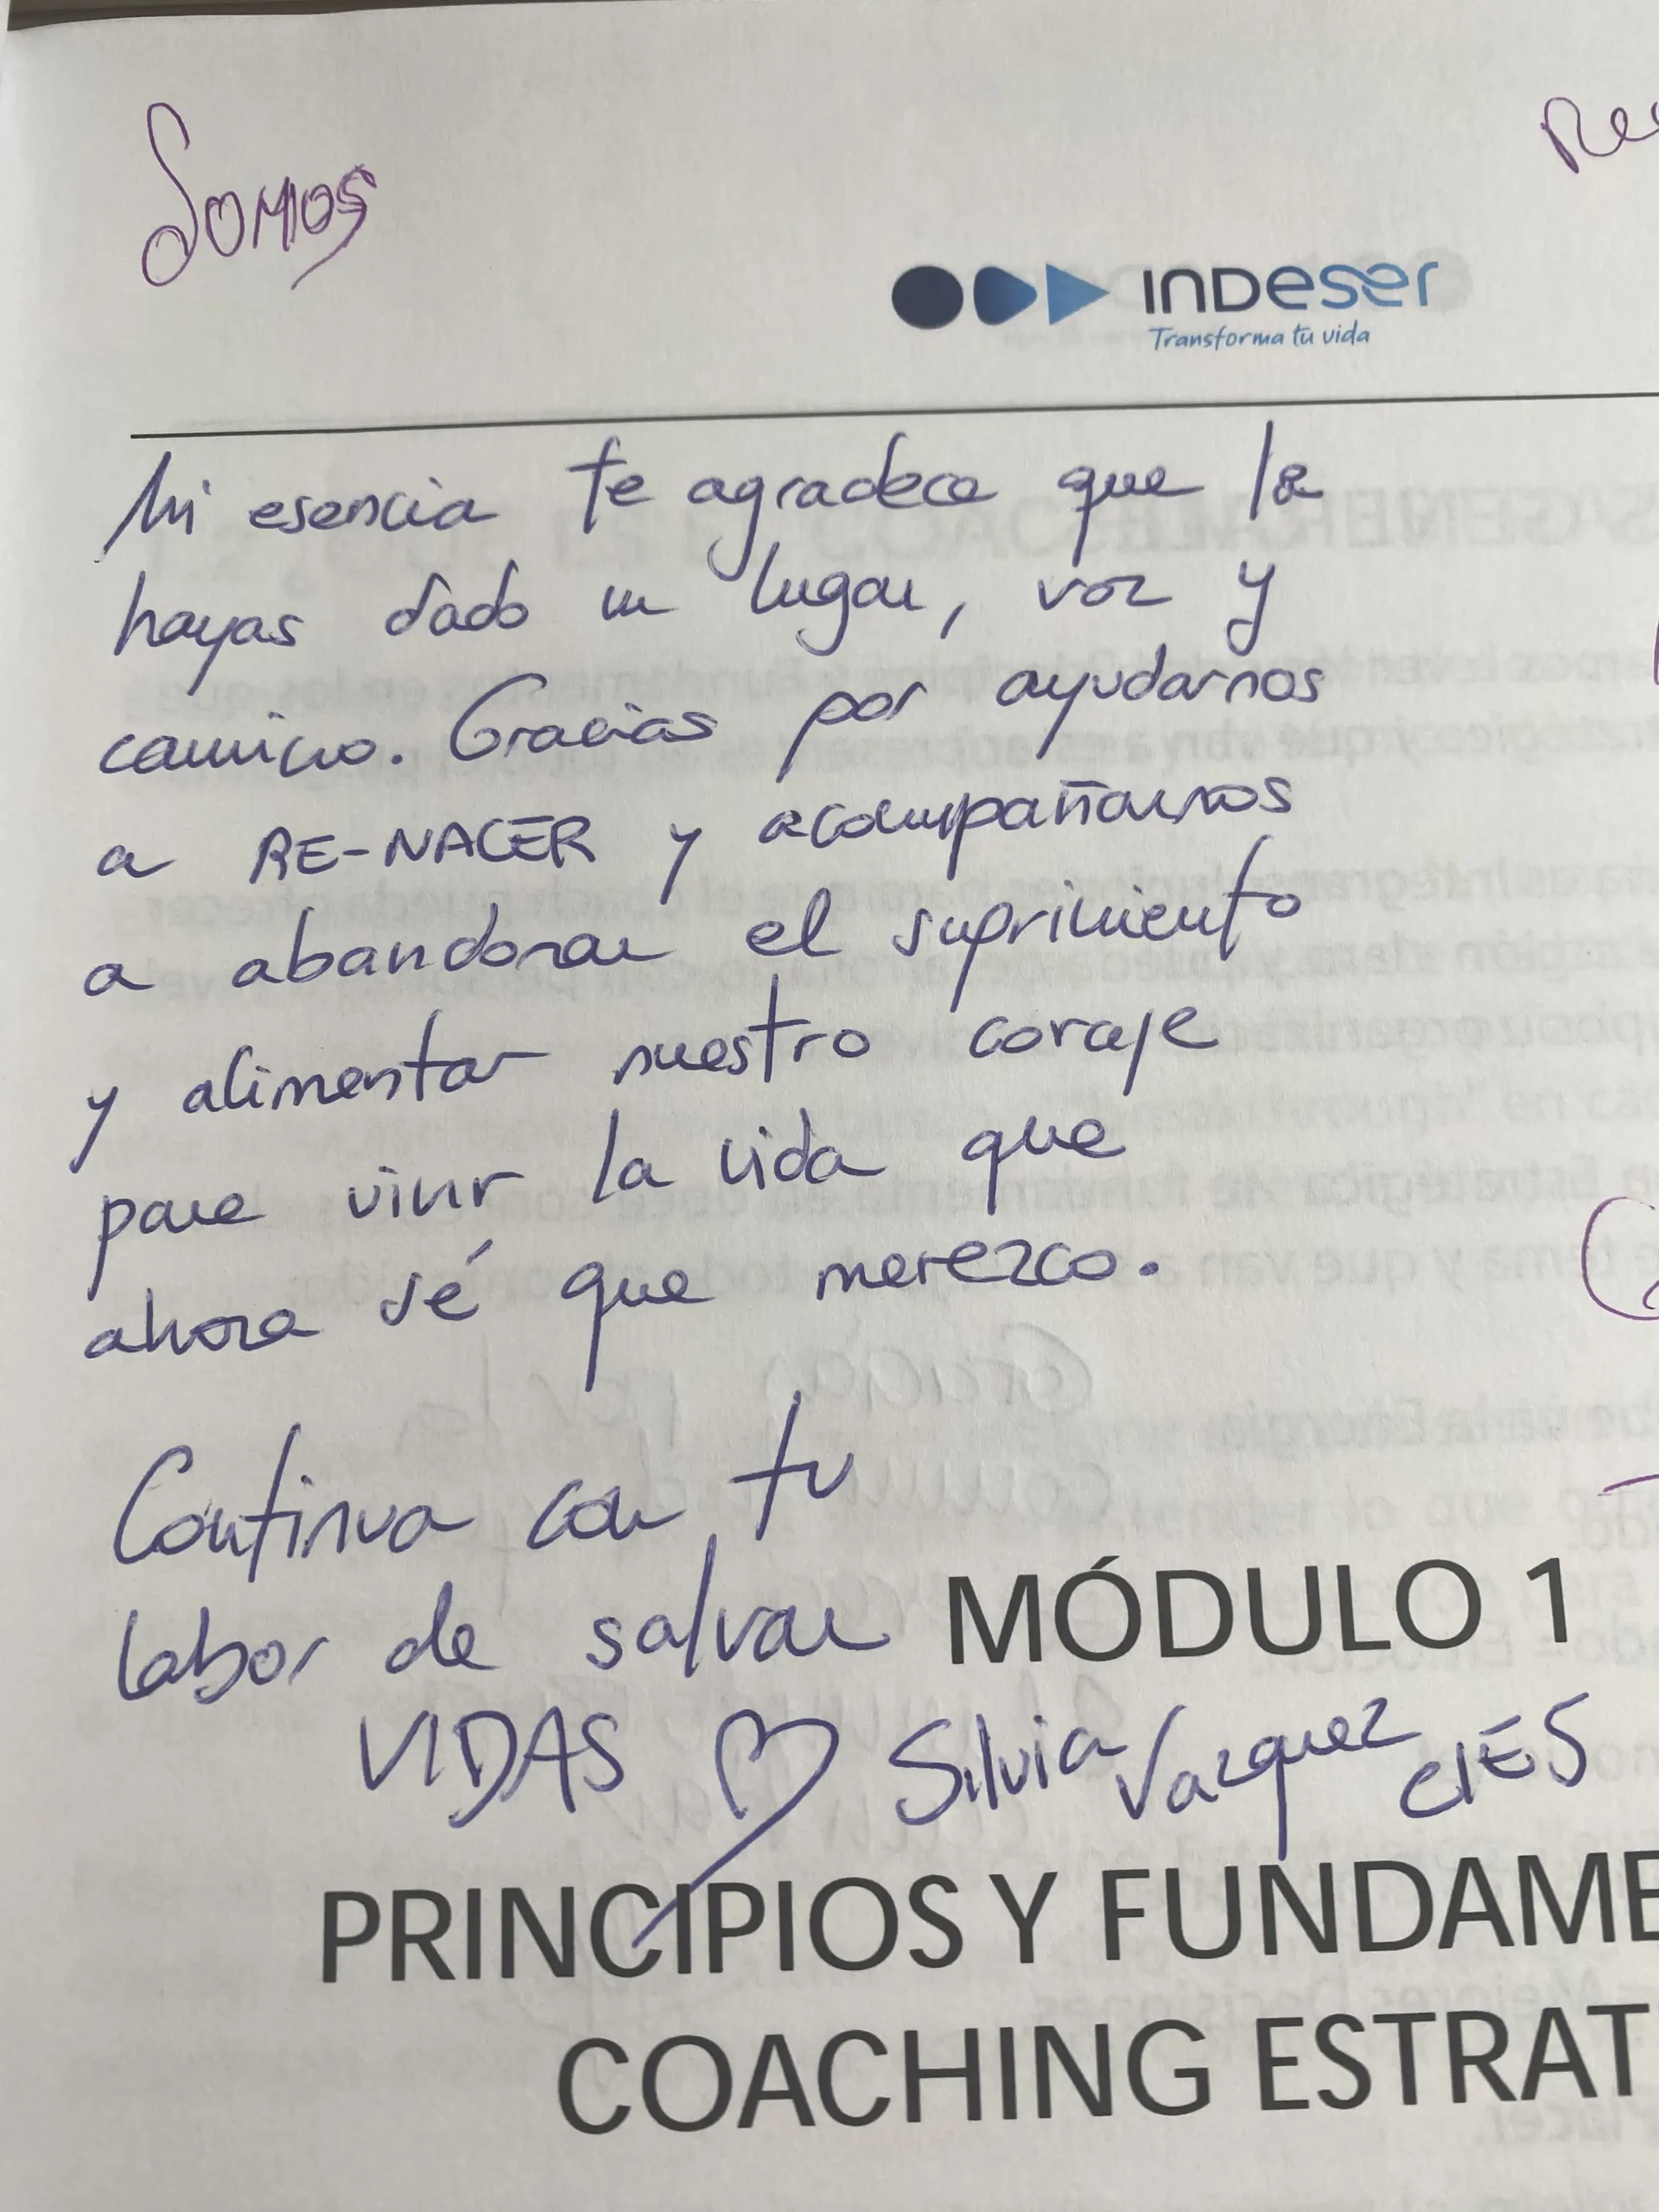 Somos
INDeser
Transforma tu vida
Mi esencia te agradece que la
hayas dado un lugar, voz y
camino. Gracias por ayudarnos
a RE-NACER y acompañarnos
a abandonar el suprimiento
y alimentar nuestro coraje
para vivir la vida que
ahora sé que merezco.
Continua con tu
labor de salvar MÓDULO 1
VIDAS Silvia Vazquez CIES
PRINCIPIOS Y FUNDAME
COACHING ESTRAT